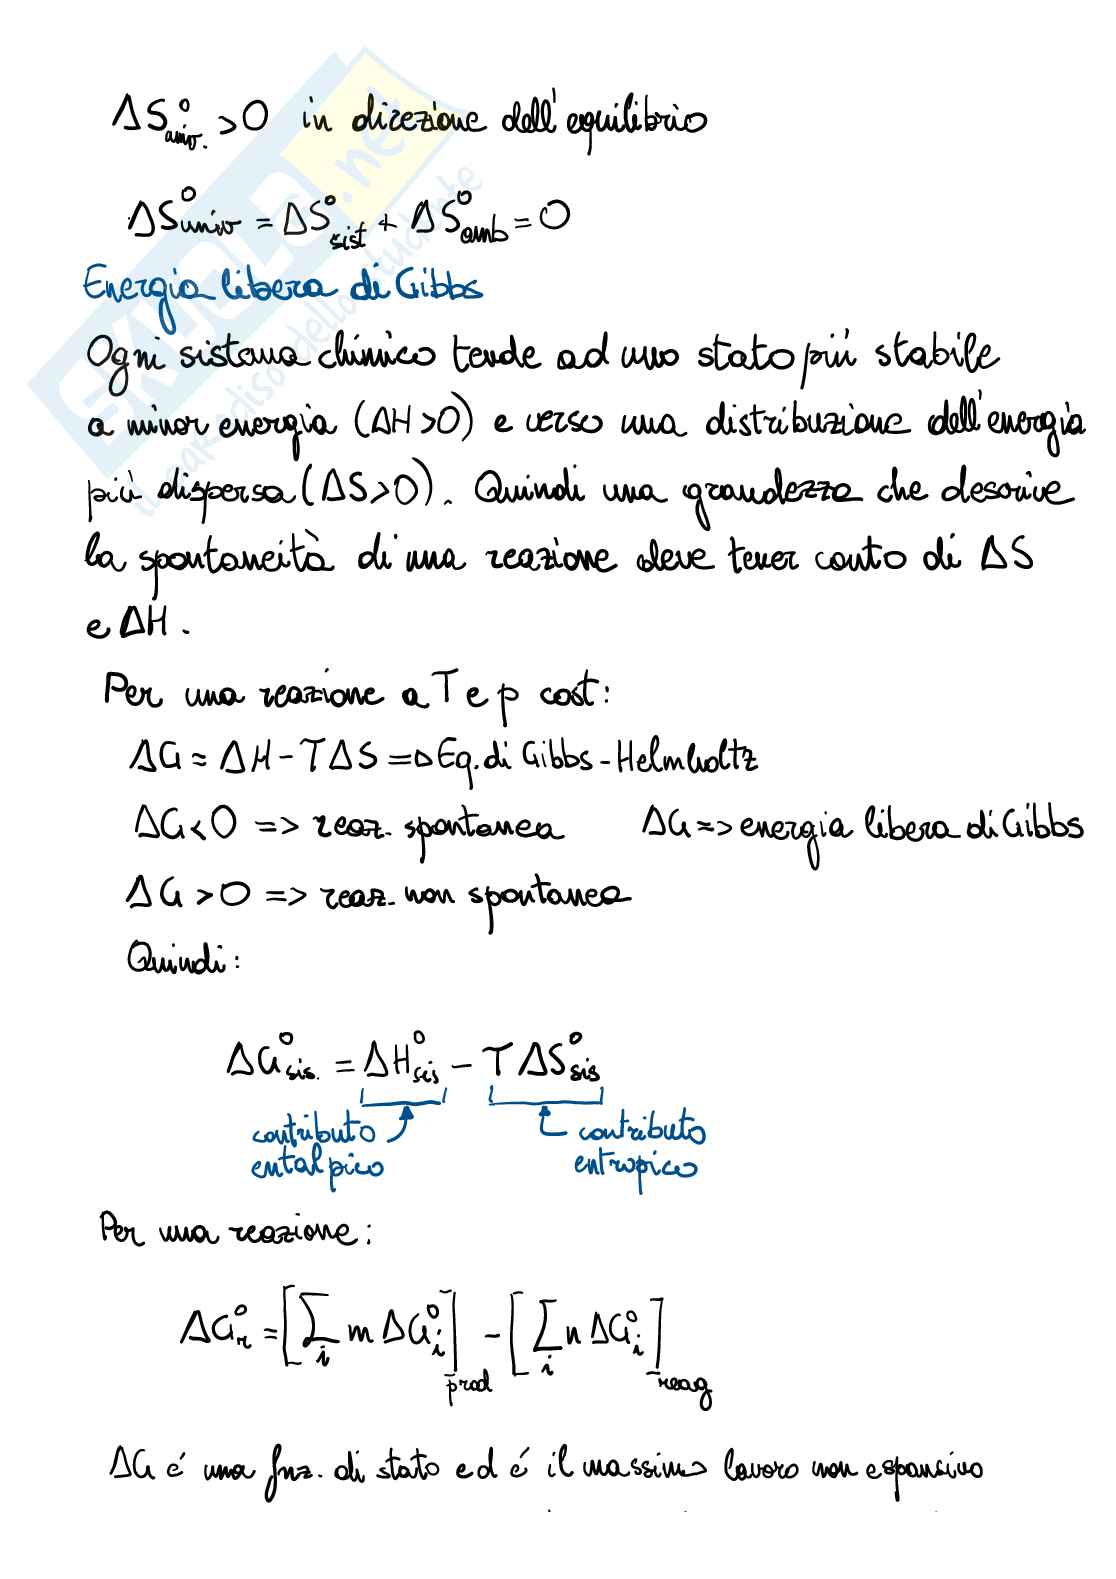 ΔS°univ. >0 in direzione dell'equilibrio
ΔS°univ = ΔS°sist + ΔS°amb = 0
Energia libera di Gibbs
Ogni sistema chimico tende ad uno stato piú stabile
a minor energia (ΔH>0) e verso una distribuzione dell'energia
più dispersa (ΔS>0). Quindi una grandezza che descrive
la spontaneità di una reazione deve tener conto di ΔS
e ΔH.
Per una reazione a T e p cost:
ΔG = ΔH - TΔS => Eq. di Gibbs - Helmholtz
ΔG<0 => reaz. spontanea ΔG => energia libera di Gibbs
ΔG>0 => reaz. non spontanea
Quindi:
ΔG°sis. = ΔH°sis - TΔS°sis
contributo entalpico
contributo entropico
Per una reazione:
ΔG°r = [Σi m ΔG°i]prod - [Σi n ΔG°i]reag
ΔG é una fnz. di stato ed é il massimo lavoro non espansivo
SKUOLA.net
il paradiso dello studente